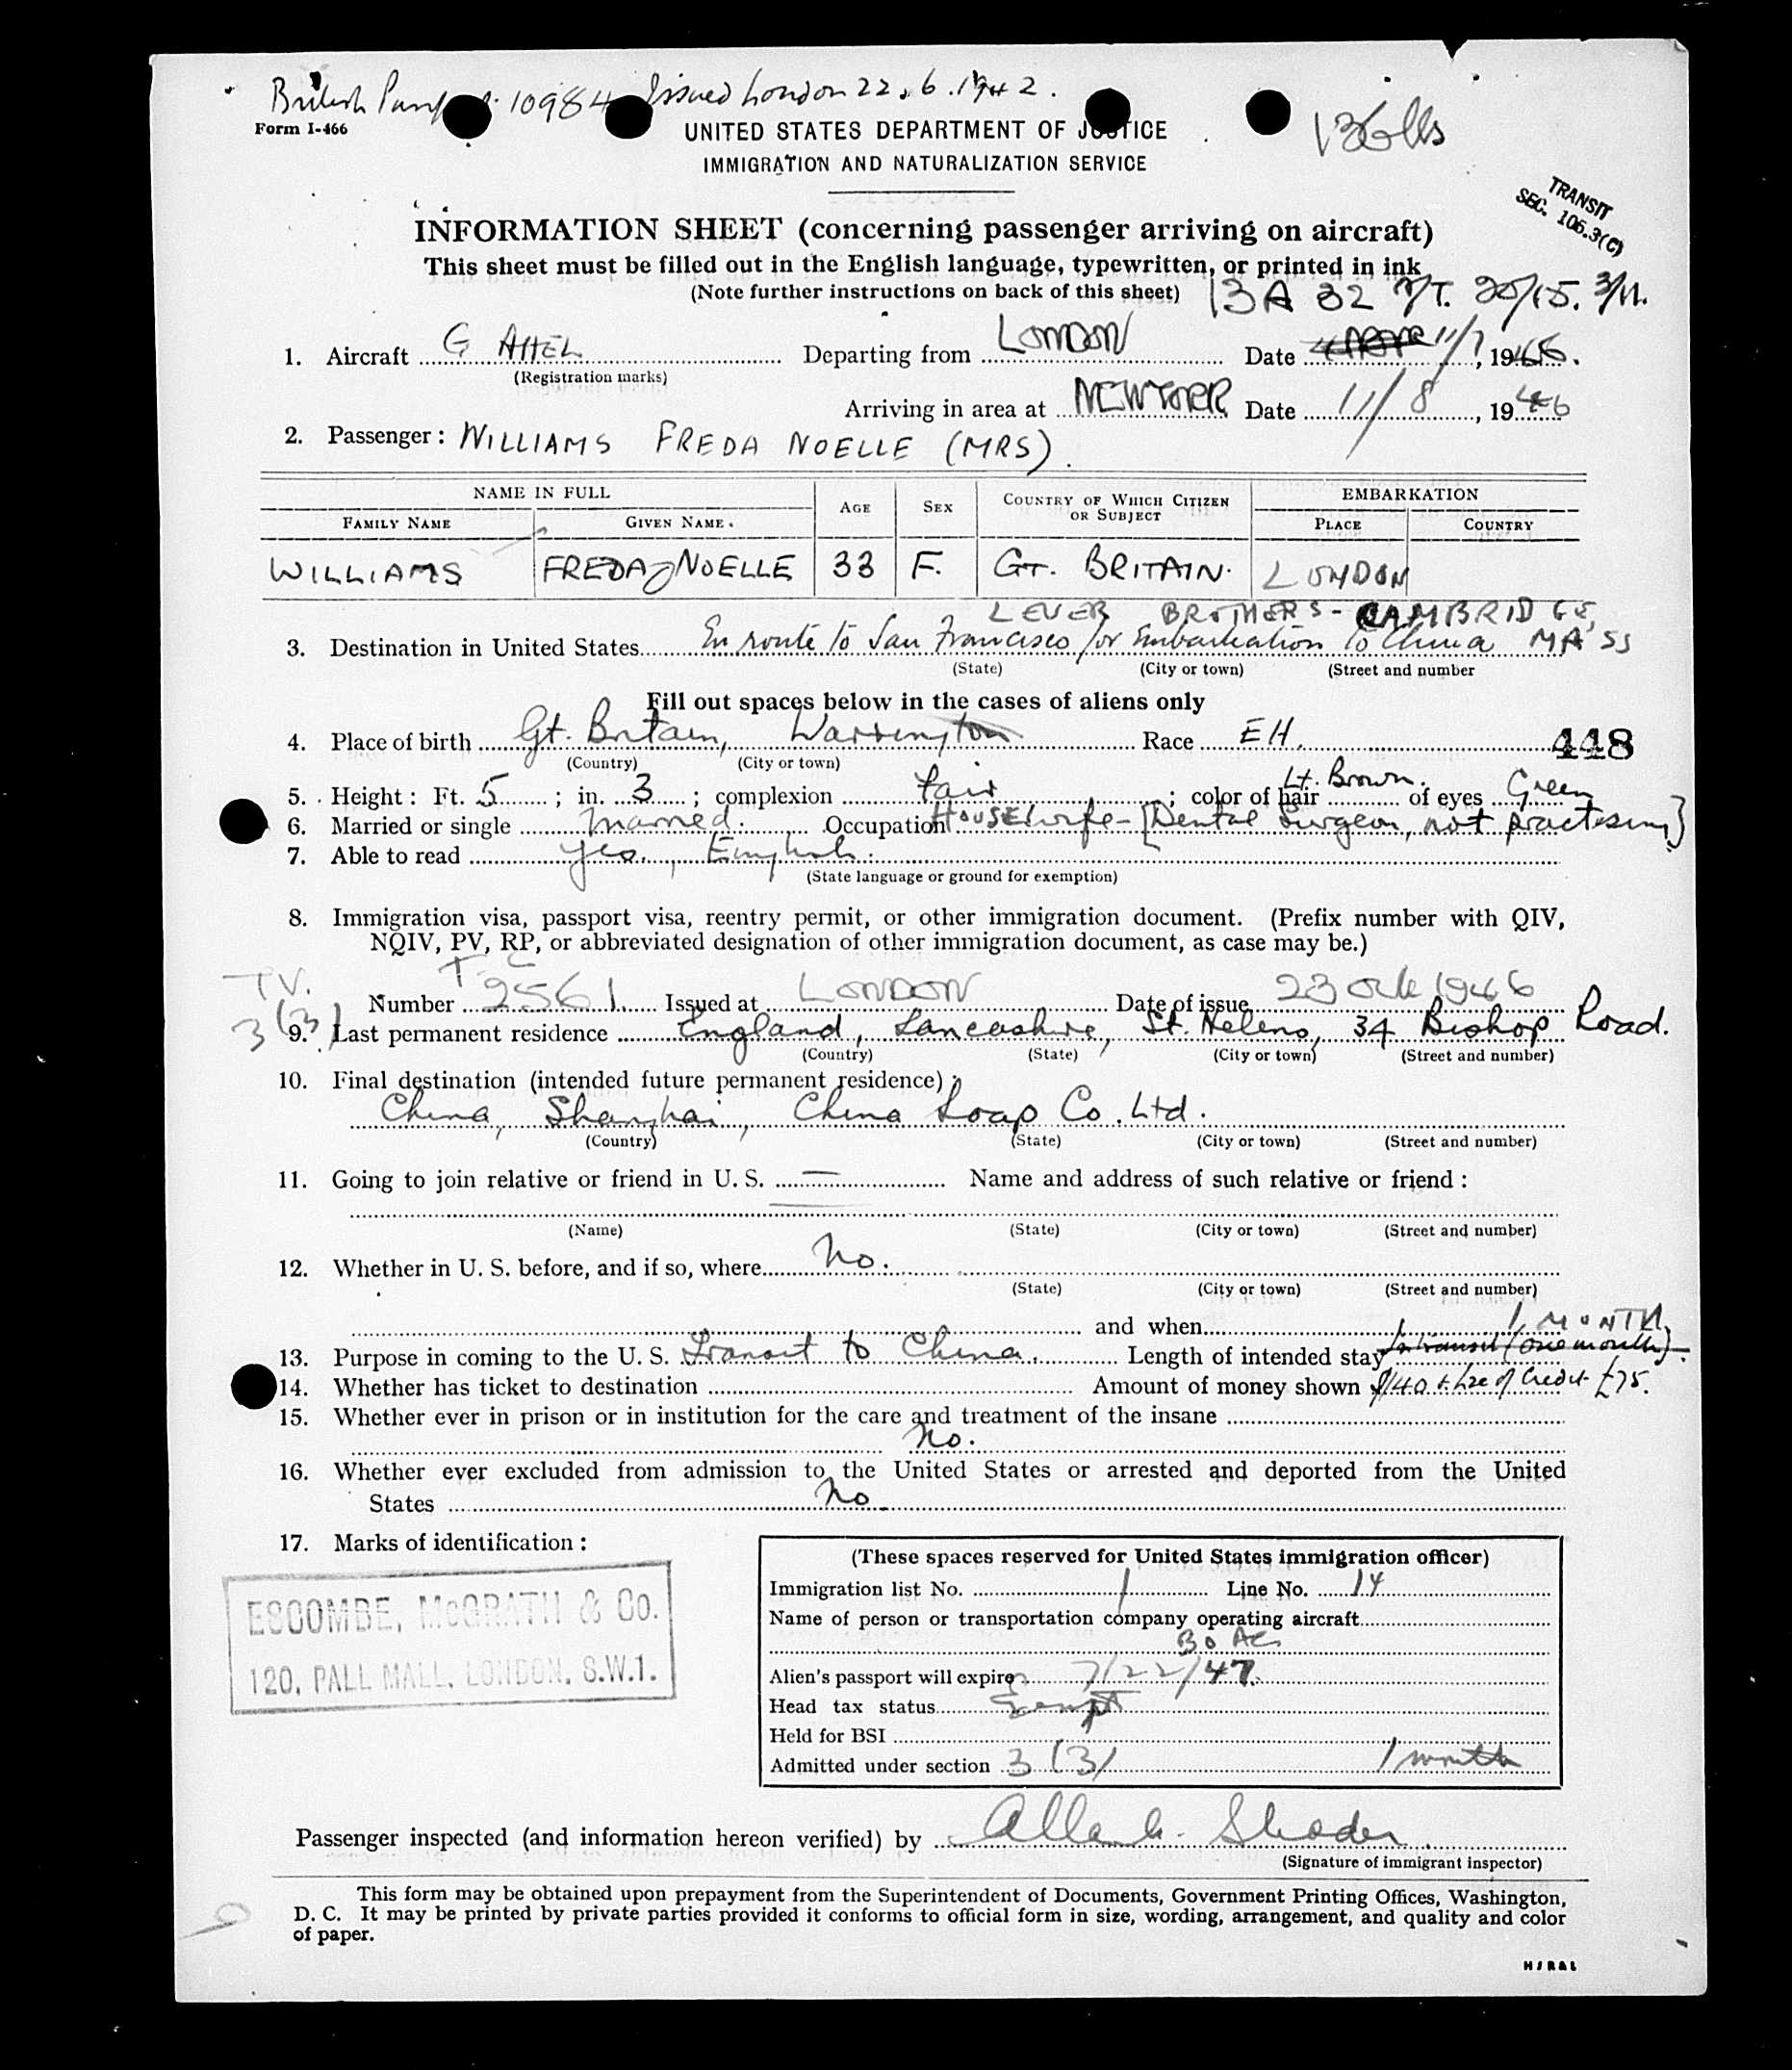 British 10984 Issued London 22.6.1942.
Form I-466
UNITED STATES DEPARTMENT OF JUSTICE
IMMIGRATION AND NATURALIZATION SERVICE
136 lbs
TRANSIT
SEC. 106.3(C)
INFORMATION SHEET (concerning passenger arriving on aircraft)
This sheet must be filled out in the English language, typewritten, or printed in ink
(Note further instructions on back of this sheet)
1. Aircraft G AHEL Departing from LONDON Date 11/7, 1946.
(Registration marks)
Arriving in area at NEW YORK Date 11/8, 1946
2. Passenger: WILLIAMS FREDA NOELLE (MRS).
NAME IN FULL AGE SEX COUNTRY OF WHICH CITIZEN OR SUBJECT EMBARKATION
FAMILY NAME GIVEN NAME. PLACE COUNTRY
WILLIAMS FREDA NOELLE 33 F. GT. BRITAIN. LONDON
LEVER BROTHERS - CAMBRIDGE,
3. Destination in United States En route to San Francisco for Embarkation to China MASS
(State) (City or town) (Street and number
Fill out spaces below in the cases of aliens only
4. Place of birth Gt. Britain, Warrington Race EH. 448
(Country) (City or town)
5. Height: Ft. 5; in. 3; complexion fair; color of hair Lt. Brown. of eyes Green
6. Married or single Married. Occupation Housewife - [Dental Surgeon, not practising]
7. Able to read yes, English.
(State language or ground for exemption)
8. Immigration visa, passport visa, reentry permit, or other immigration document. (Prefix number with QIV,
NQIV, PV, RP, or abbreviated designation of other immigration document, as case may be.)
TV. T.C
Number 2561 Issued at LONDON Date of issue 23 Oct 1946
3(3)
9. Last permanent residence England, Lancashire, St. Helens, 34 Bishop Road.
(Country) (State) (City or town) (Street and number)
10. Final destination (intended future permanent residence):
China, Shanghai, China Soap Co. Ltd.
(Country) (State) (City or town) (Street and number)
11. Going to join relative or friend in U. S. — Name and address of such relative or friend:
(Name) (State) (City or town) (Street and number)
12. Whether in U. S. before, and if so, where No.
(State) (City or town) (Street and number)
and when 1 MONTH.
13. Purpose in coming to the U. S. Transit to China. Length of intended stay In transit (one month).
14. Whether has ticket to destination Amount of money shown $140 + Lre of Credit £75.
15. Whether ever in prison or in institution for the care and treatment of the insane
No.
16. Whether ever excluded from admission to the United States or arrested and deported from the United
States No
17. Marks of identification:
ESCOMBE, McGRATH & Co.
120, PALL MALL, LONDON, S.W.1.
(These spaces reserved for United States immigration officer)
Immigration list No. 1 Line No. 14
Name of person or transportation company operating aircraft
BOAC
Alien's passport will expire 7/22/47.
Head tax status Exempt
Held for BSI
Admitted under section 3(3) 1 month
Passenger inspected (and information hereon verified) by
(Signature of immigrant inspector)
This form may be obtained upon prepayment from the Superintendent of Documents, Government Printing Offices, Washington,
D. C. It may be printed by private parties provided it conforms to official form in size, wording, arrangement, and quality and color
of paper.